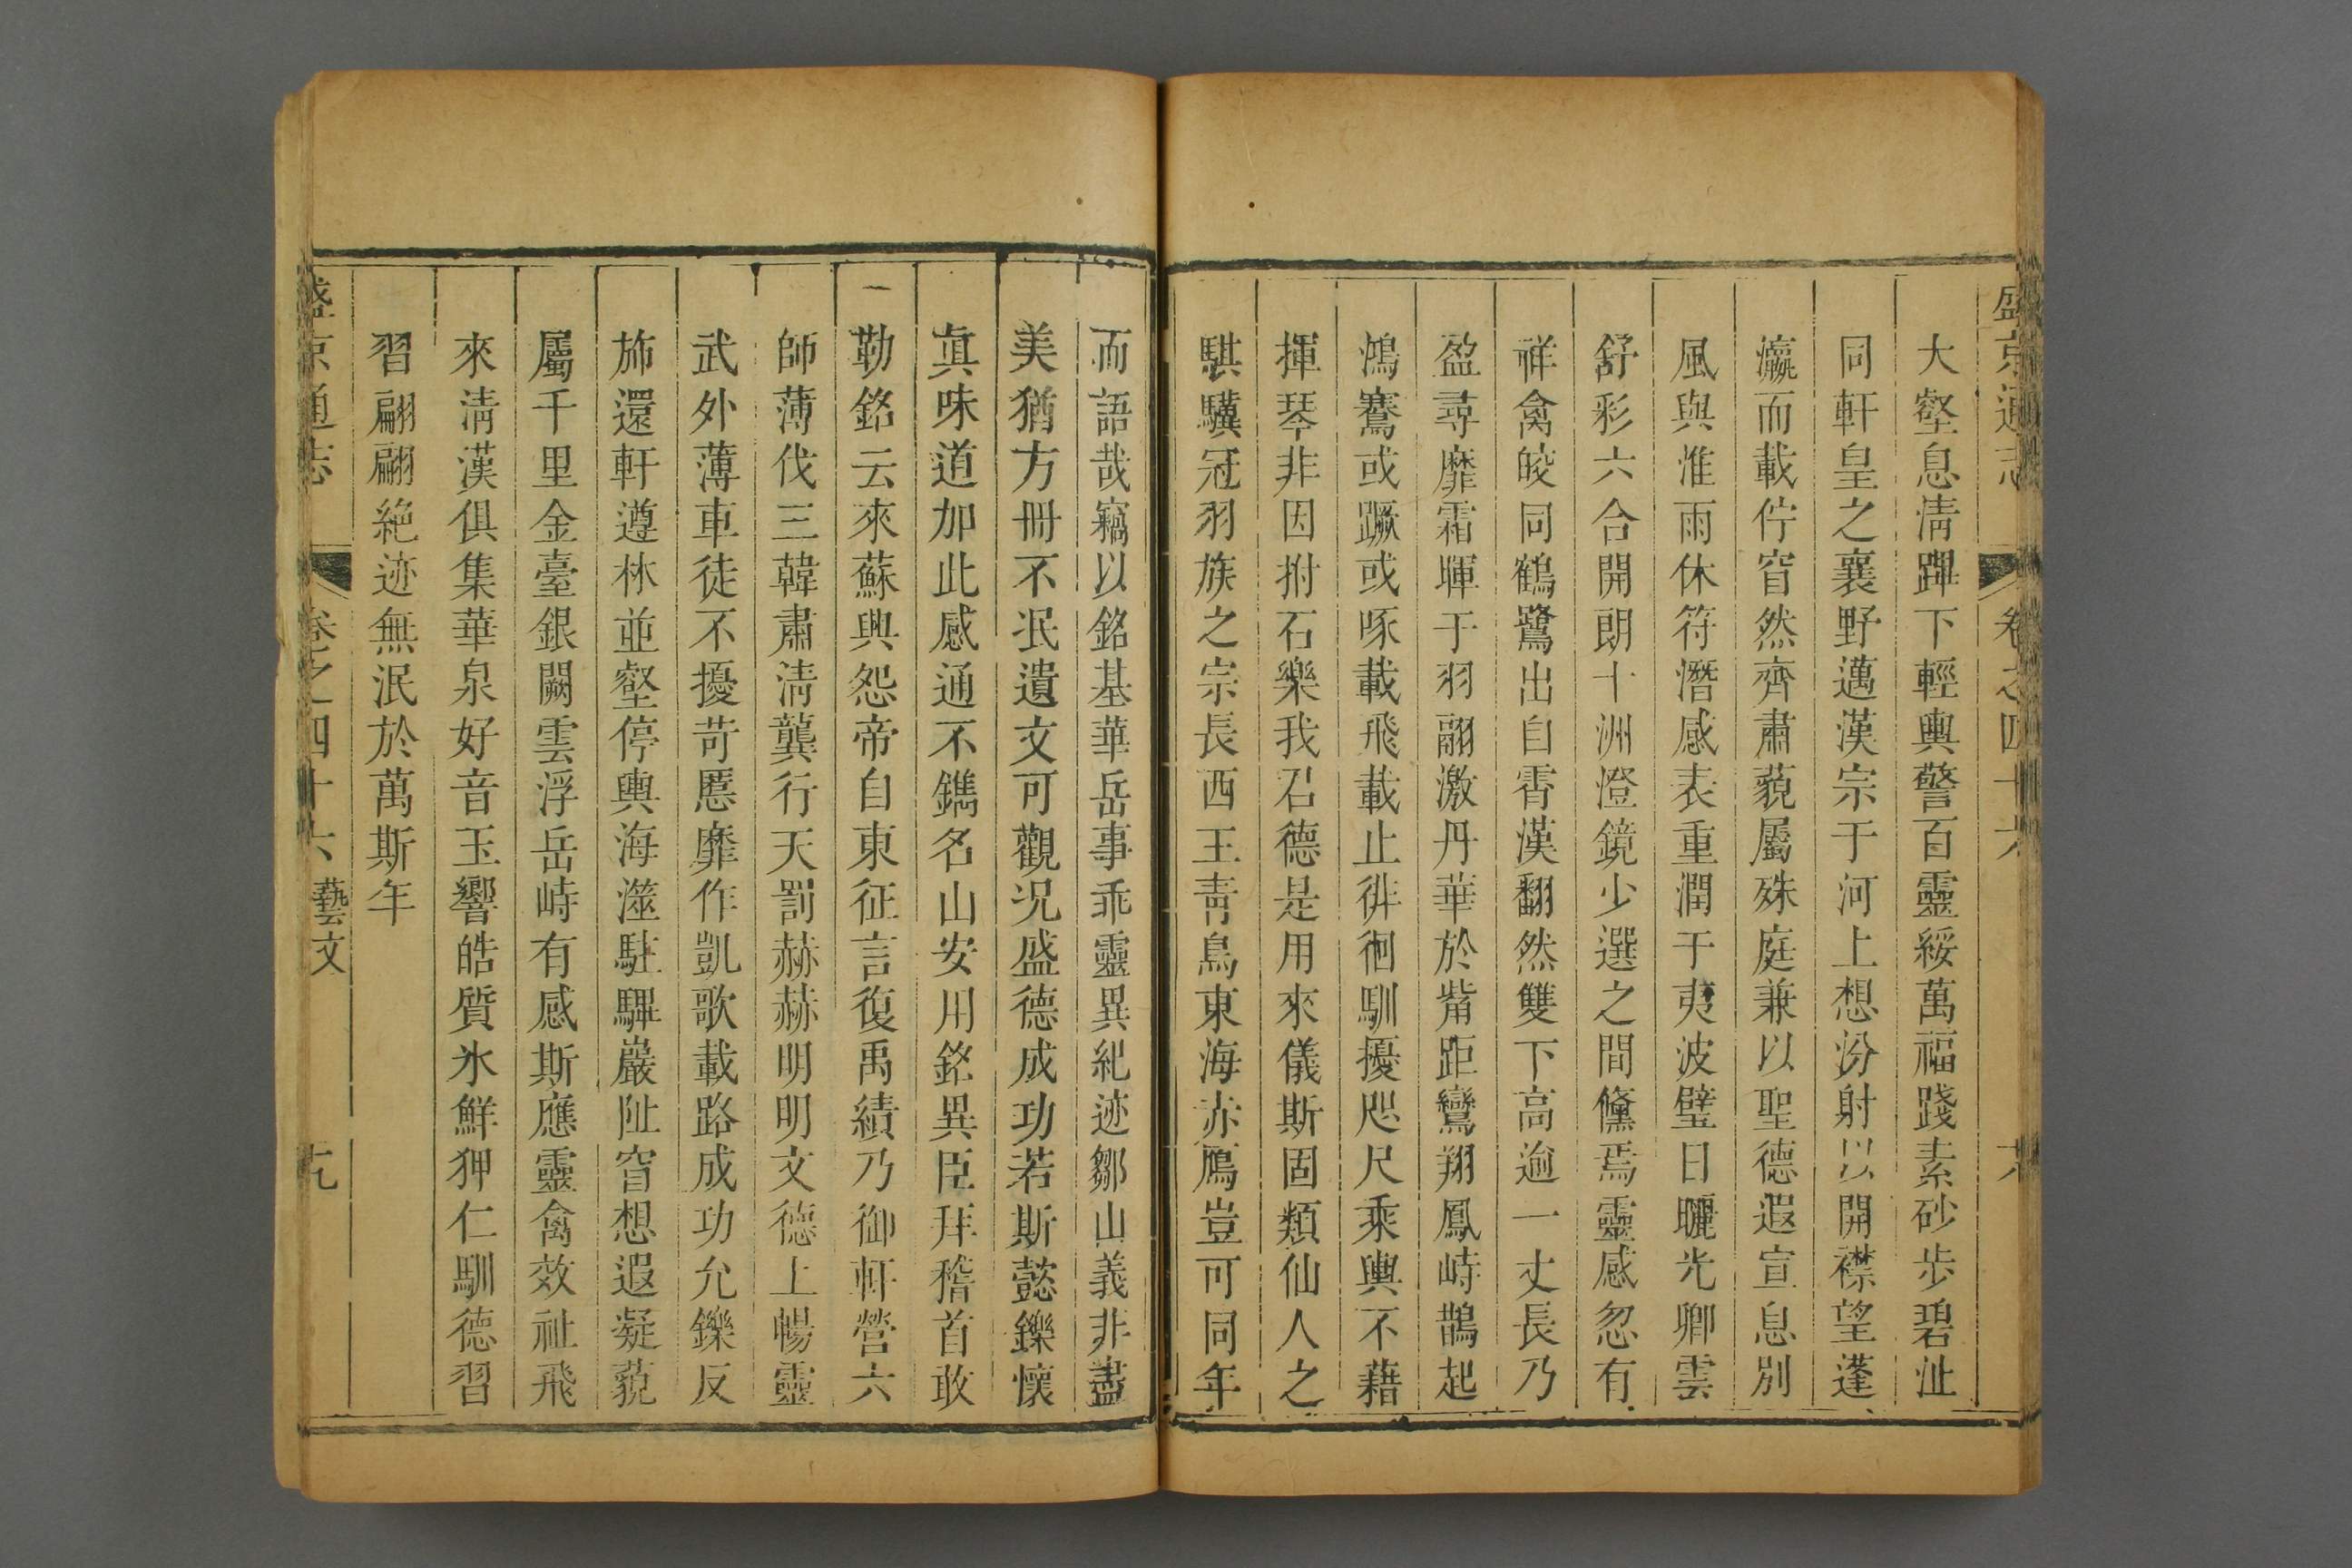 盛京通志 卷之四十六 六
大壑息淸蹕下輕輿警百靈綏萬福踐素砂步碧沚
同軒皇之襄野邁漢宗于河上想汾射以開襟望蓬
瀛而載佇窅然齊肅藐屬殊庭兼以聖德遐宣息別
風與淮雨休符潛感表重潤于夷波璧日曬光卿雲
舒彩六合開朗十洲澄鏡少選之間儵焉靈感忽有
祥禽皎同鶴鷺出自霄漢翻然雙下高逾一丈長乃
盈尋靡霜暉于羽翮激丹華於觜距鸞翔鳳峙鵲起
鴻騫或蹶或啄載飛載止徘徊馴擾咫尺乘輿不藉
揮琴非因拊石樂我君德是用來儀斯固類仙人之
騏驥冠羽族之宗長西王靑鳥東海赤鴈豈可同年
而語哉竊以銘基華岳事乖靈異紀迹鄒山義非盡
美猶方冊不泯遺文可觀况盛德成功若斯懿鑠懷
眞味道加此感通不鐫名山安用銘異臣拜稽首敢
勒銘云來蘇興怨帝自東征言復禹績乃御軒營六
師薄伐三韓肅淸龔行天罰赫赫明明文德上暢靈
武外薄車徒不擾苛慝靡作凱歌載路成功允鑠反
斾還軒遵林並壑停輿海澨駐驆巖阯窅想遐凝藐
屬千里金臺銀闕雲浮岳峙有感斯應靈禽效祉飛
來淸漢俱集華泉好音玉響皓質氷鮮狎仁馴德習
習翩翩絶迹無泯於萬斯年
盛京通志 卷之四十六 藝文 九